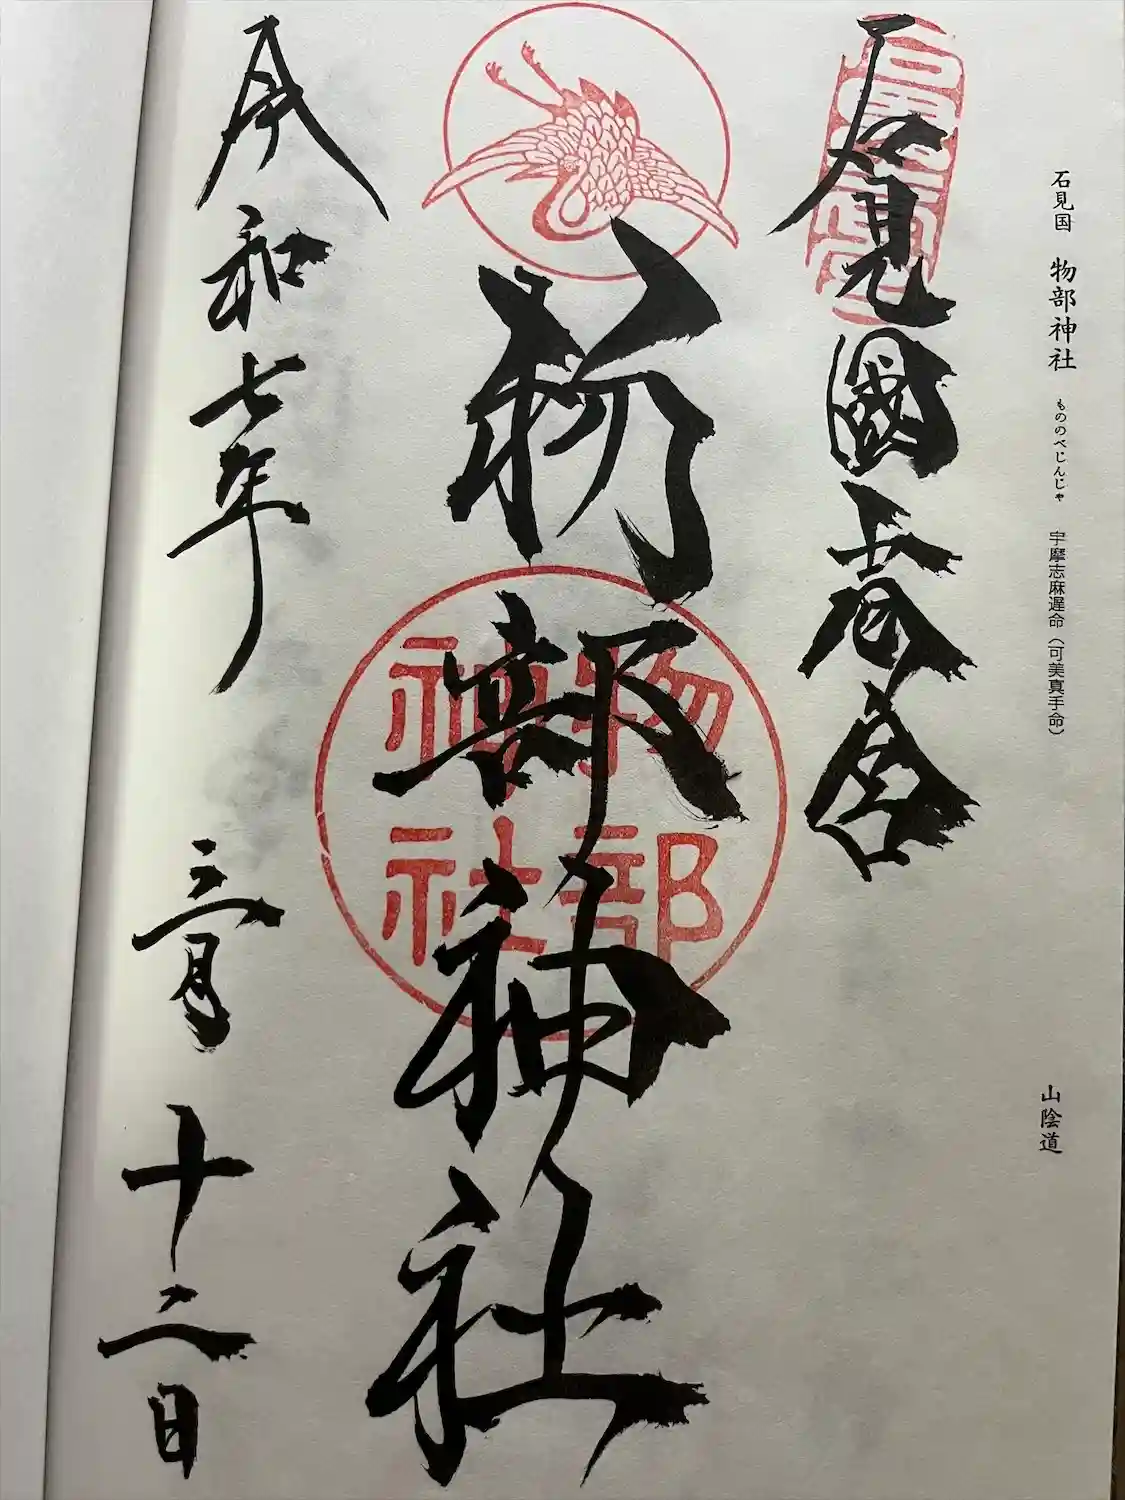 石見国 物部神社 もののべじんじゃ 宇摩志麻遅命（可美真手命） 山陰道
石見國壹宮
物部神社
物部神社
令和七年三月十二日